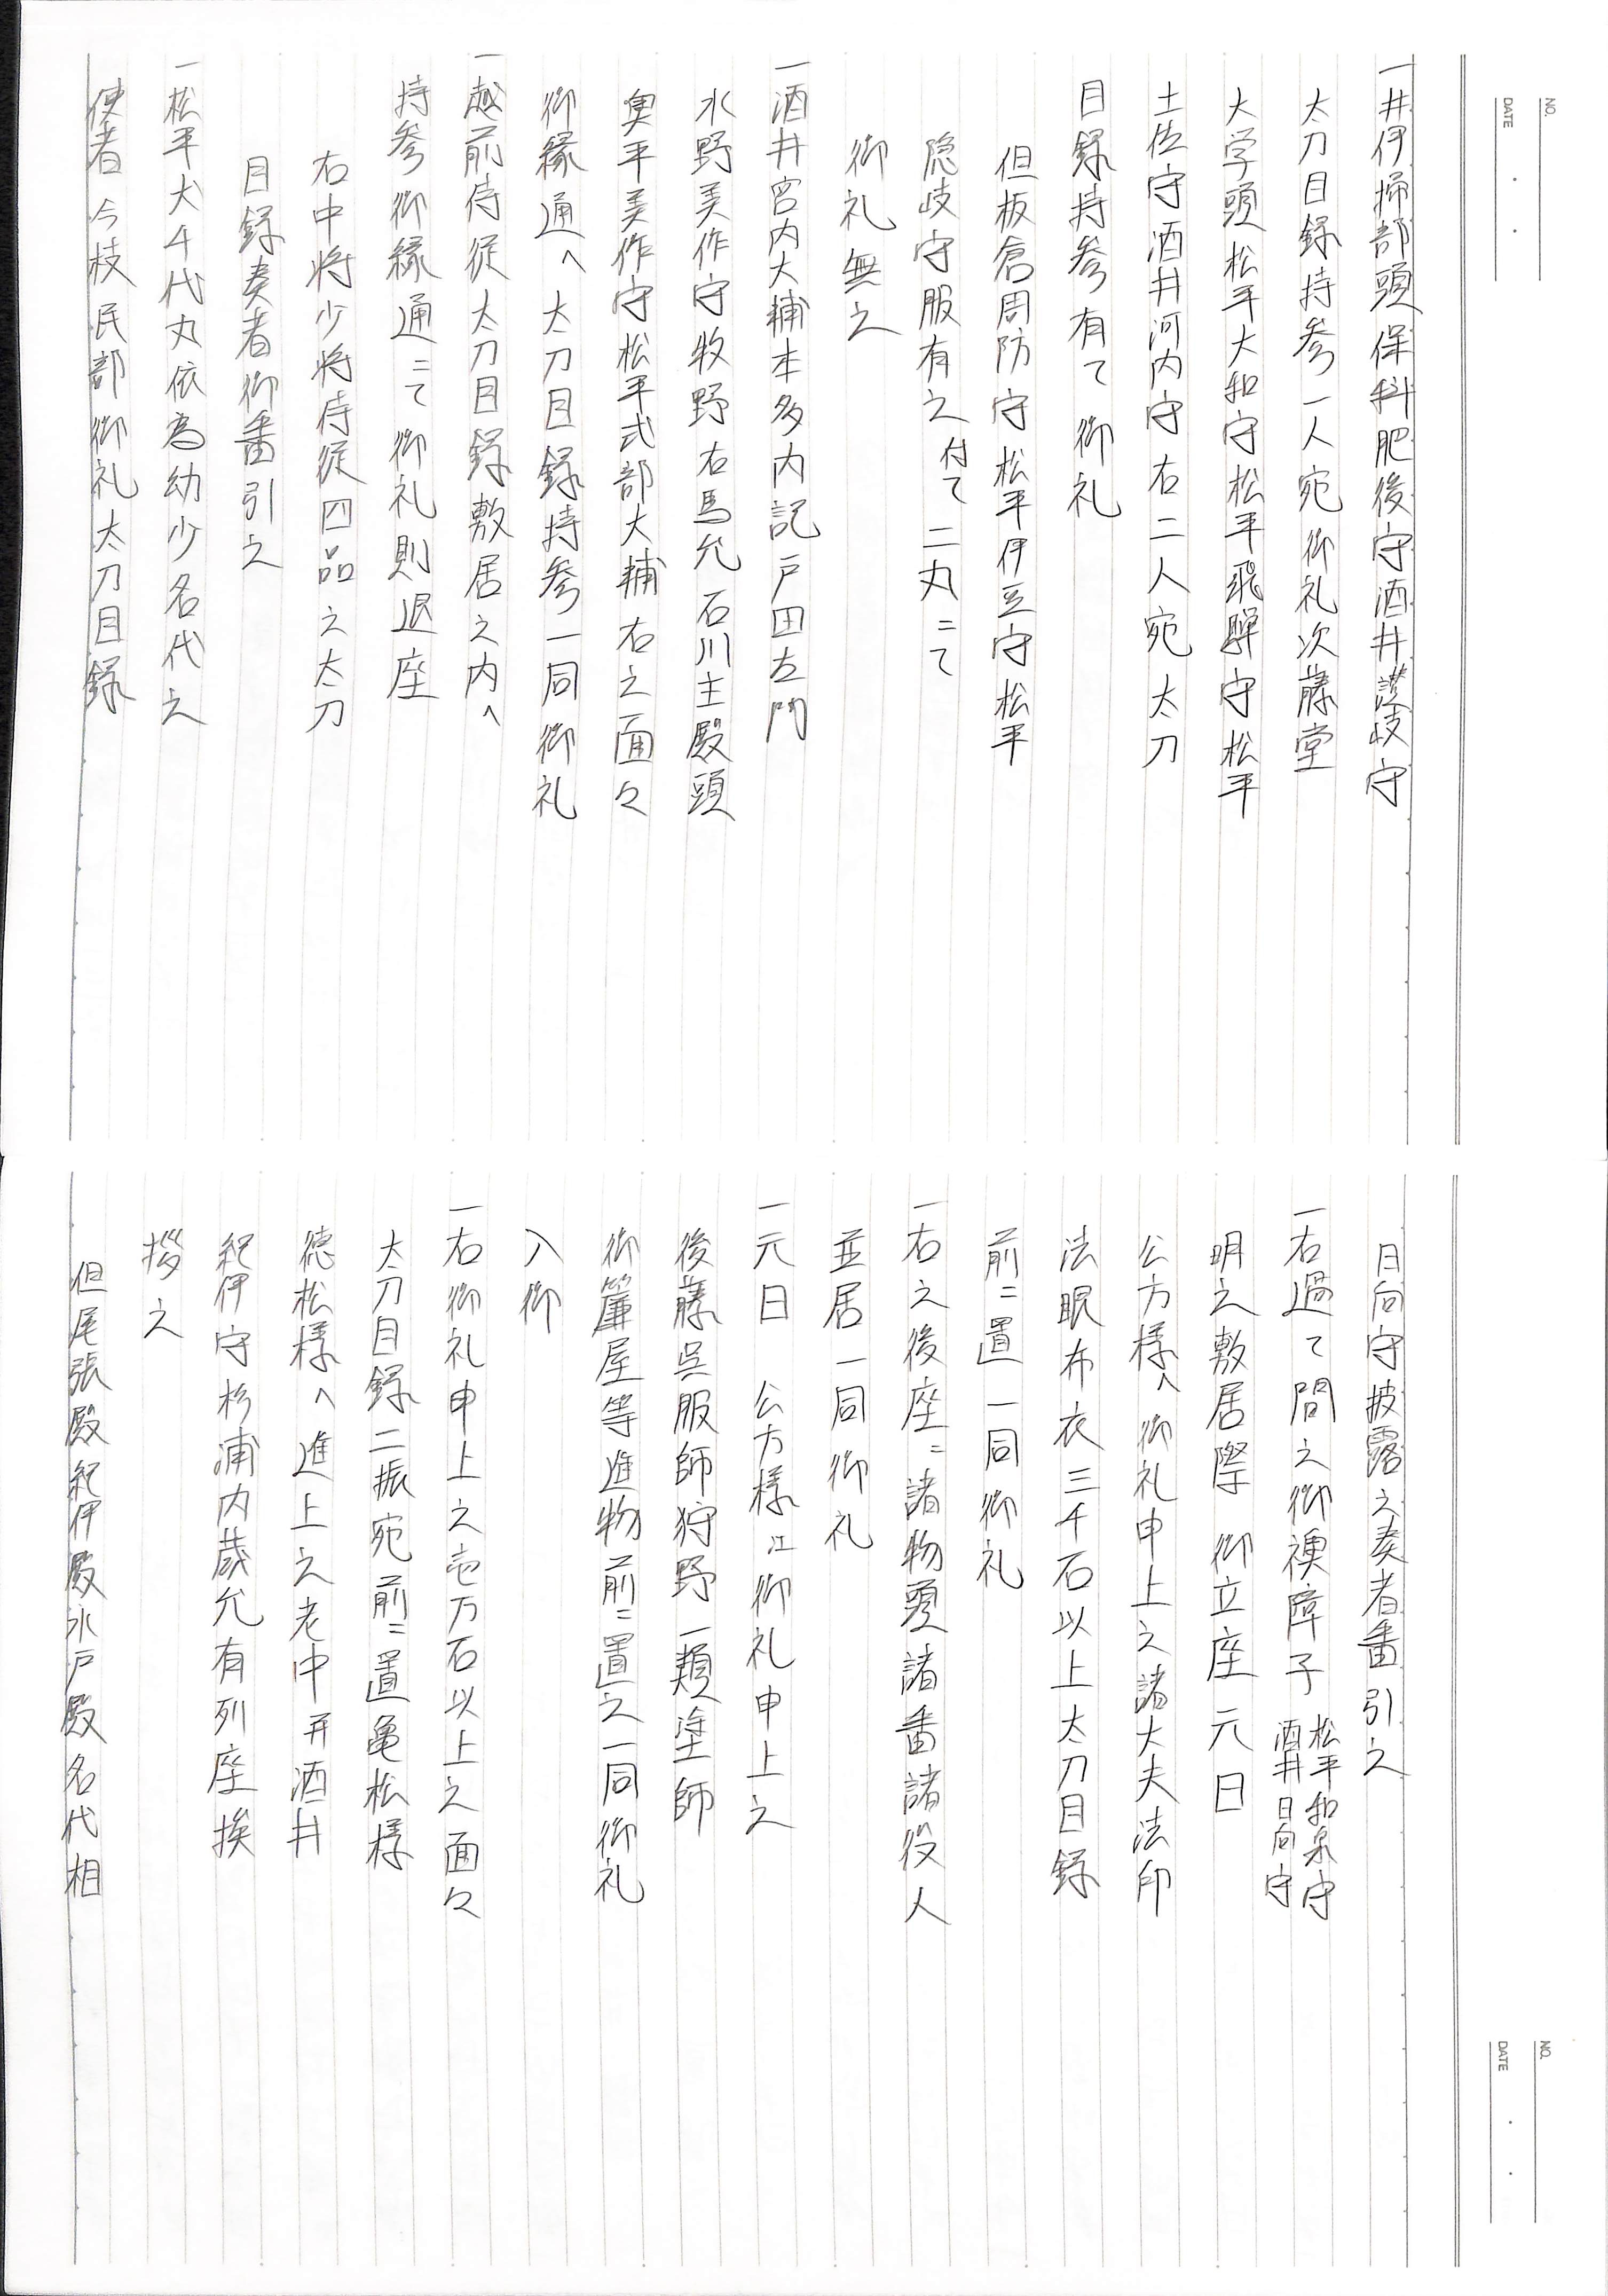 NO.
DATE
一井伊掃部頭保科肥後守酒井讃岐守
太刀目録持参一人宛御礼次藤堂
大学頭松平大和守松平飛騨守松平
土佐守酒井河内守右二人宛太刀
目録持参有て御礼
但板倉周防守松平伊豆守松平
隠岐守服有之付て二丸ニて
御礼無之
一酒井宮内大輔本多内記戸田左門
水野美作守牧野右馬允石川主殿頭
奥平美作守松平式部大輔右之面々
御縁通へ太刀目録持参一同御礼
一越前侍従太刀目録敷居之内へ
持参御縁通ニて御礼則退座
右中将少将侍従四品之太刀
目録奏者御番引之
一松平犬千代丸依為幼少名代之
使者今枝民部御礼太刀目録
NO.
DATE
日向守披露之奏者番引之
一右過て間之御襖障子松平和泉守酒井日向守
明之敷居際御立座元日
公方様へ御礼申上之諸大夫法印
法眼布衣三千石以上太刀目録
前ニ置一同御礼
一右之後座ニ諸物頭諸番諸役人
並居一同御礼
一元日 公方様江御礼申上之
後藤呉服師狩野一類塗師
御簾屋等進物前ニ置之一同御礼
入御
一右御礼申上之壱万石以上之面々
太刀目録二振宛前ニ置亀松様
徳松様へ進上之老中并酒井
紀伊守杉浦内蔵允有列座挨
拶之
但尾張殿紀伊殿水戸殿名代相